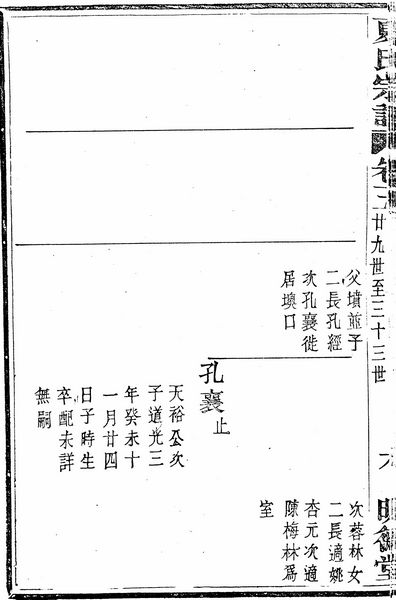 夏氏宗譜
廿九世至三十三世
堂
父墳並子
二長孔經
次孔襄徙
居墺口
孔襄止
天裕公次
子道光三
年癸未十
一月廿四
日子時生
卒配未詳
無嗣
次蓉林女
二長適姚
杏元次適
陳梅林爲
室